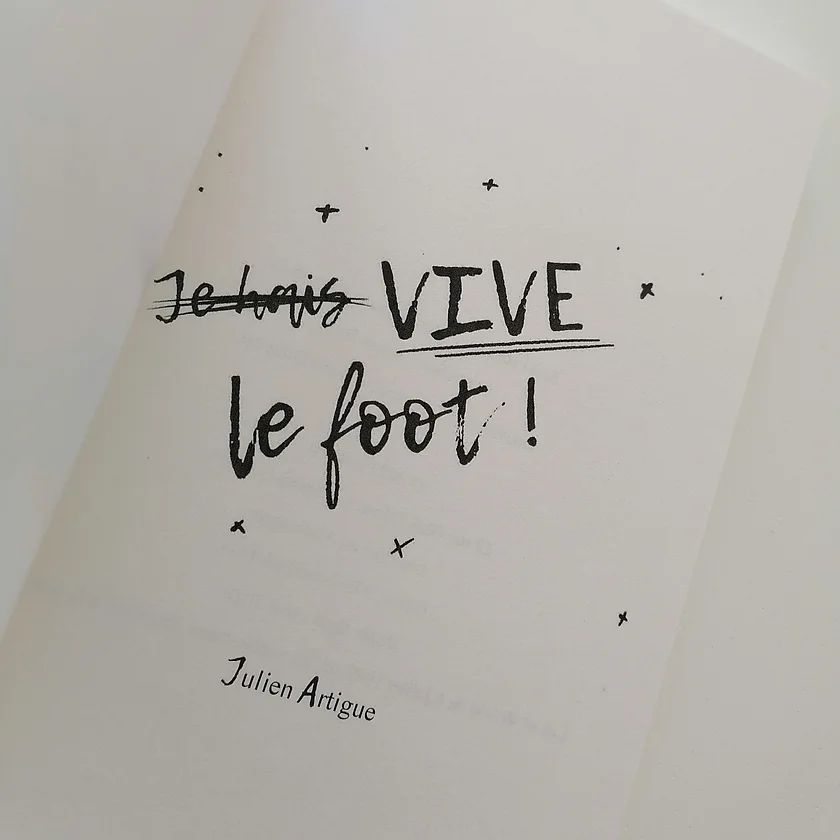 Je hais VIVE
le foot !
Julien Artigue